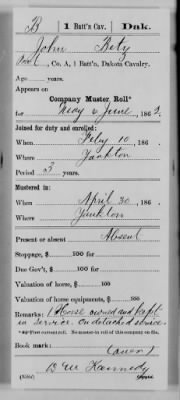 B | 1 Batt'n Cav. | Dak.
John Betz
, Co. A, 1 Batt'n, Dakota Cavalry.
Age years.
Appears on
Company Muster Roll*
for May & June, 1862.
Joined for duty and enrolled:
When Feb'y 10, 186
Where Yankton
Period 3 years.
Mustered in:
When April 30, 186
Where Yankton
Present or absent Absent
Stoppage, $ 100 for
Due Gov't, $ 100 for
Valuation of horse, $ 100
Valuation of horse equipments, $ 100
Remarks: 1 Horse owned and kept
in service. On detached service
*First current roll. No muster-in roll of this company on file.
Book mark:
B M Kennedy
Copyist.